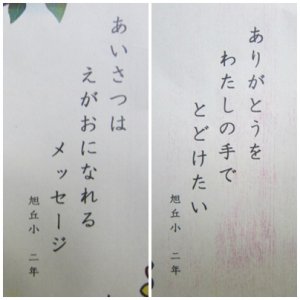 あいさつは
えがおになれる
メッセージ
旭丘小 二年
ありがとうを
わたしの手で
とどけたい
旭丘小 二年